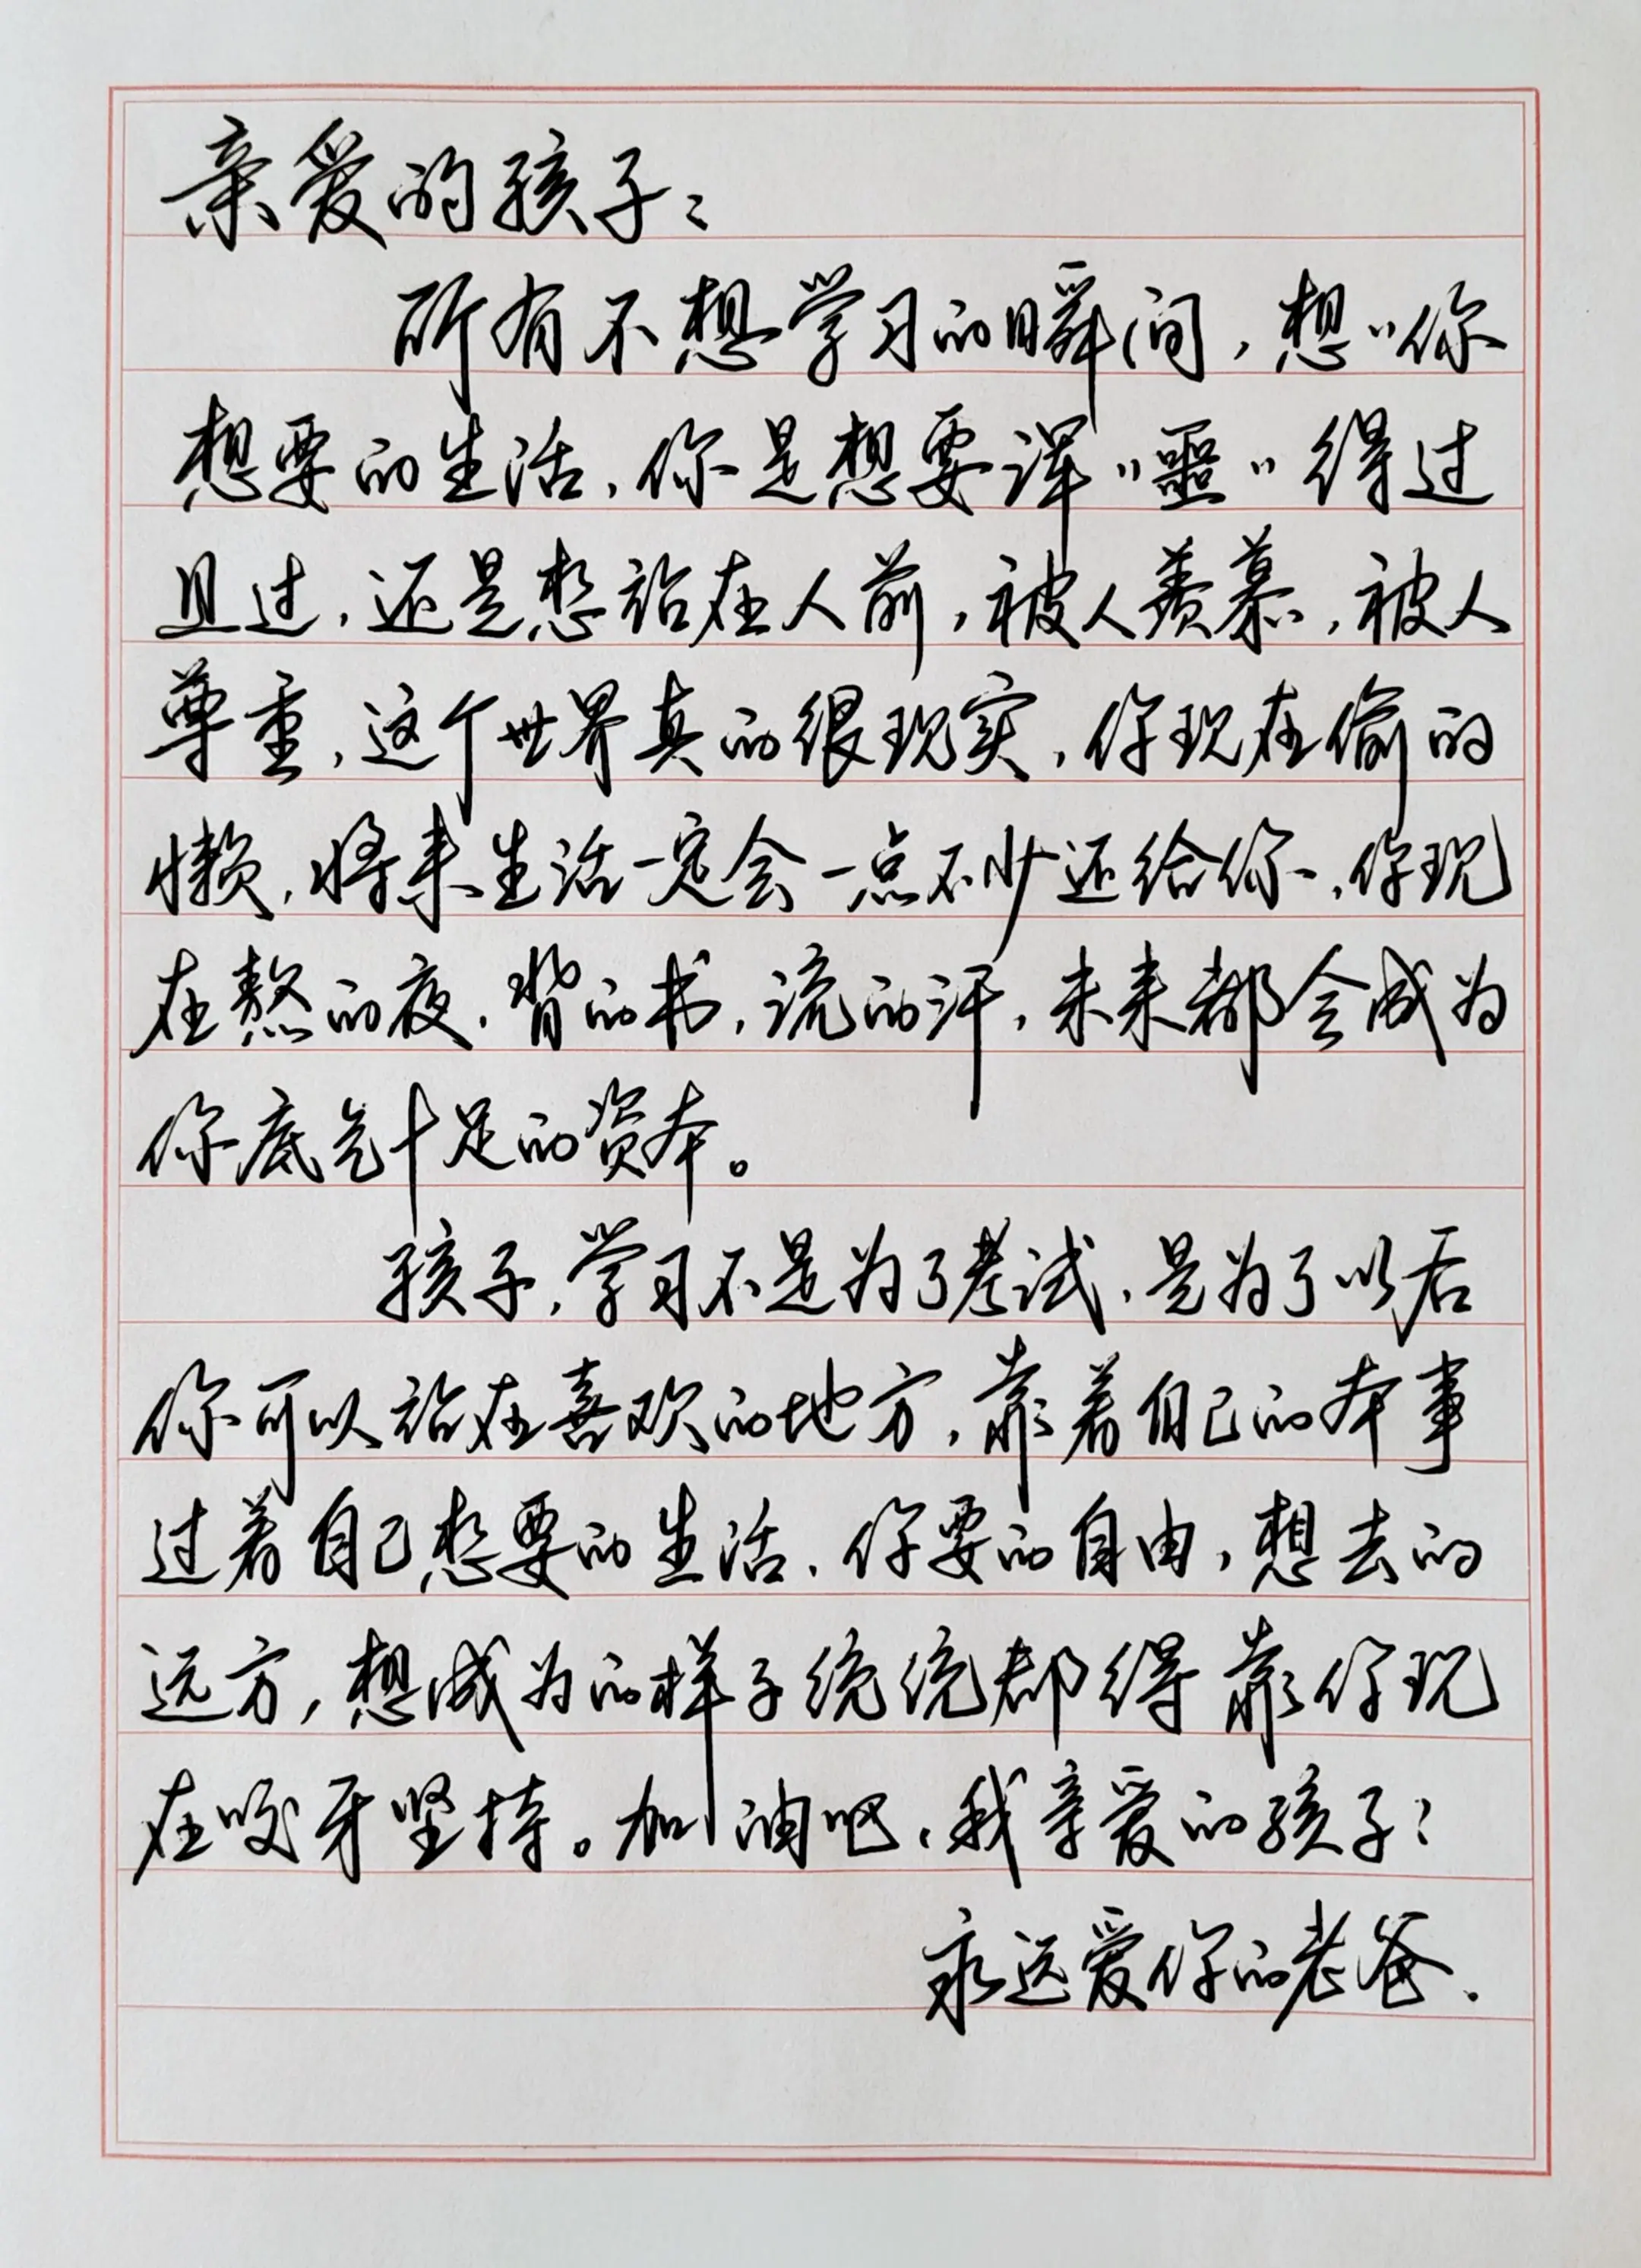 亲爱的孩子：
所有不想学习的瞬间，想〃你
想要的生活，你是想要浑〃噩〃得过
且过，还是想站在人前，被人羡慕，被人
尊重，这个世界真的很现实，你现在偷的
懒，将来生活一定会一点不少还给你，你现
在熬的夜，背的书，流的汗，未来都会成为
你底气十足的资本。
孩子，学习不是为了考试，是为了以后
你可以站在喜欢的地方，靠着自己的本事
过着自己想要的生活，你要的自由，想去的
远方，想成为的样子统统都得靠你现
在咬牙坚持。加油吧，我亲爱的孩子！
永远爱你的老爸.